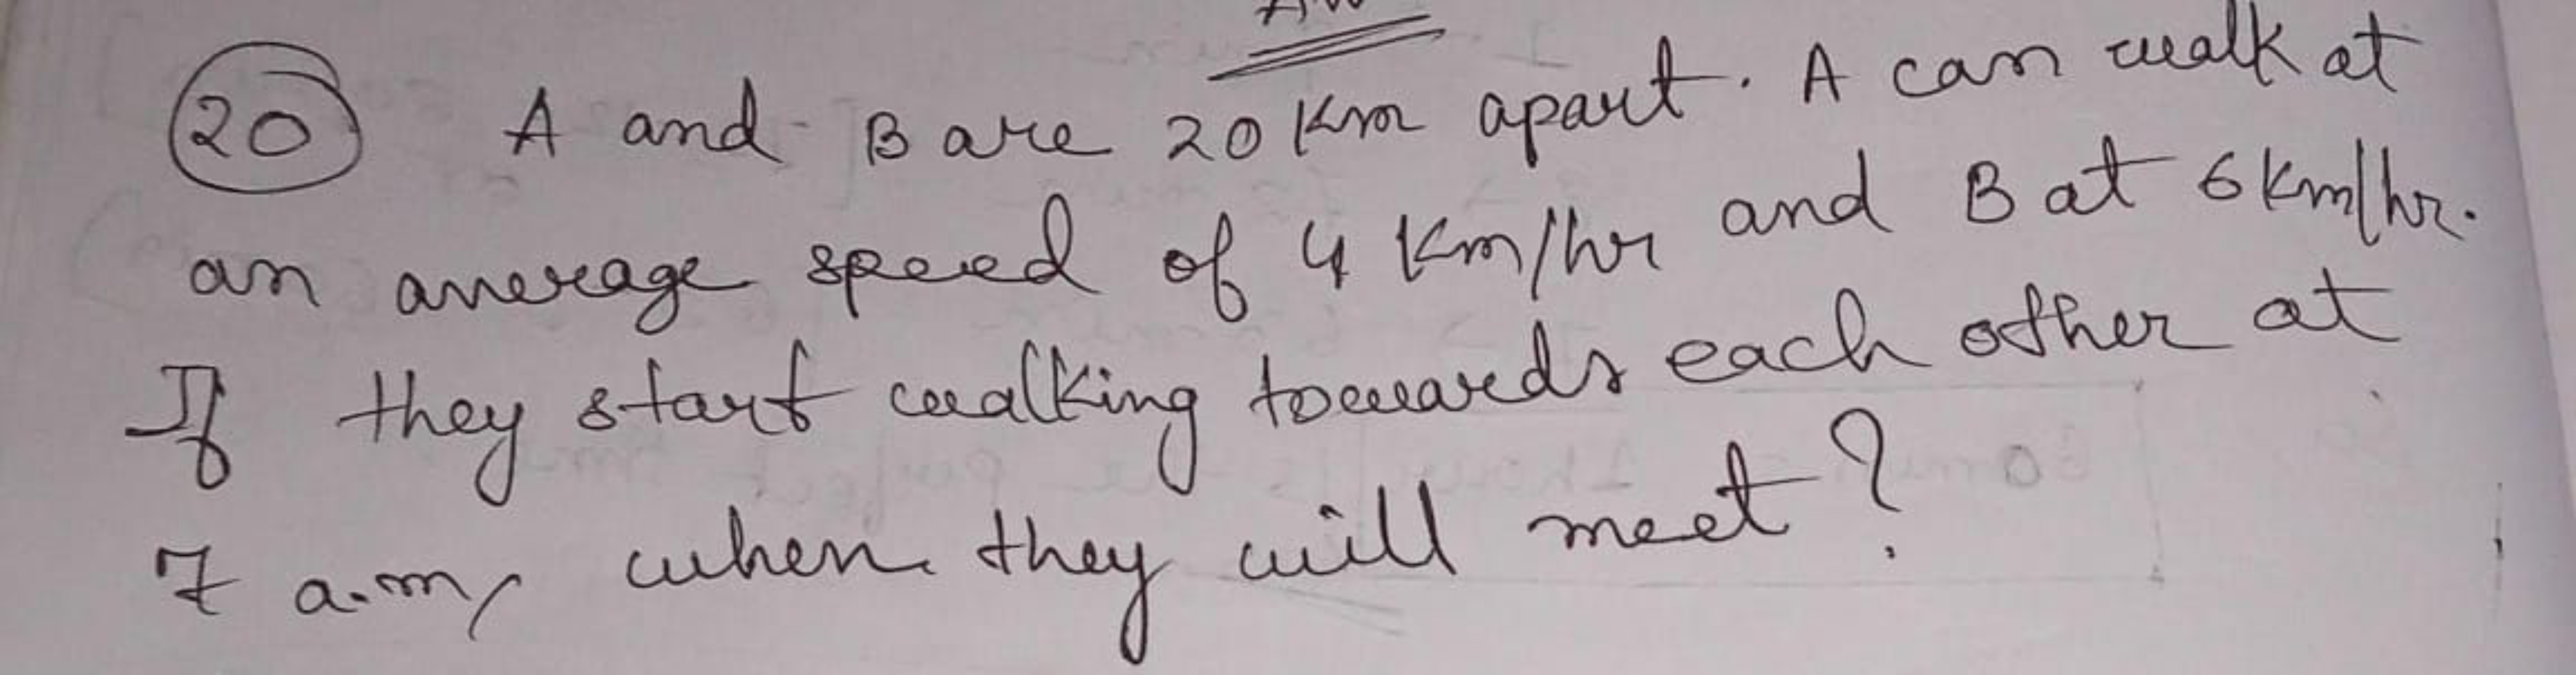 20 A and B are 20 Km apart. A can walk at
an average speed of 4 Km/hr and B at 6 Km/hr.
If they start walking towards each other at
7 a.m, when they will meet?